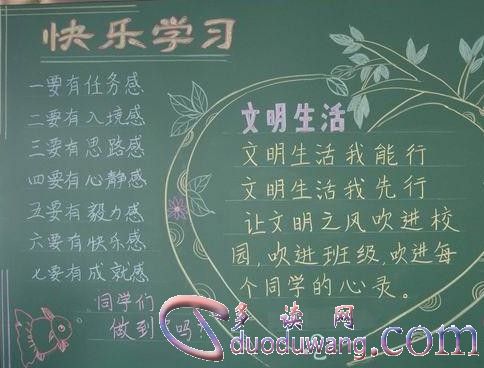 快乐学习
一要有任务感
二要有入境感
三要有思路感
四要有心静感
五要有毅力感
六要有快乐感
七要有成就感
同学们
做到 吗
文明生活
文明生活我能行
文明生活我先行
让文明之风吹进校
园,吹进班级,吹进每
个同学的心灵。
多读网
duoduwang.com